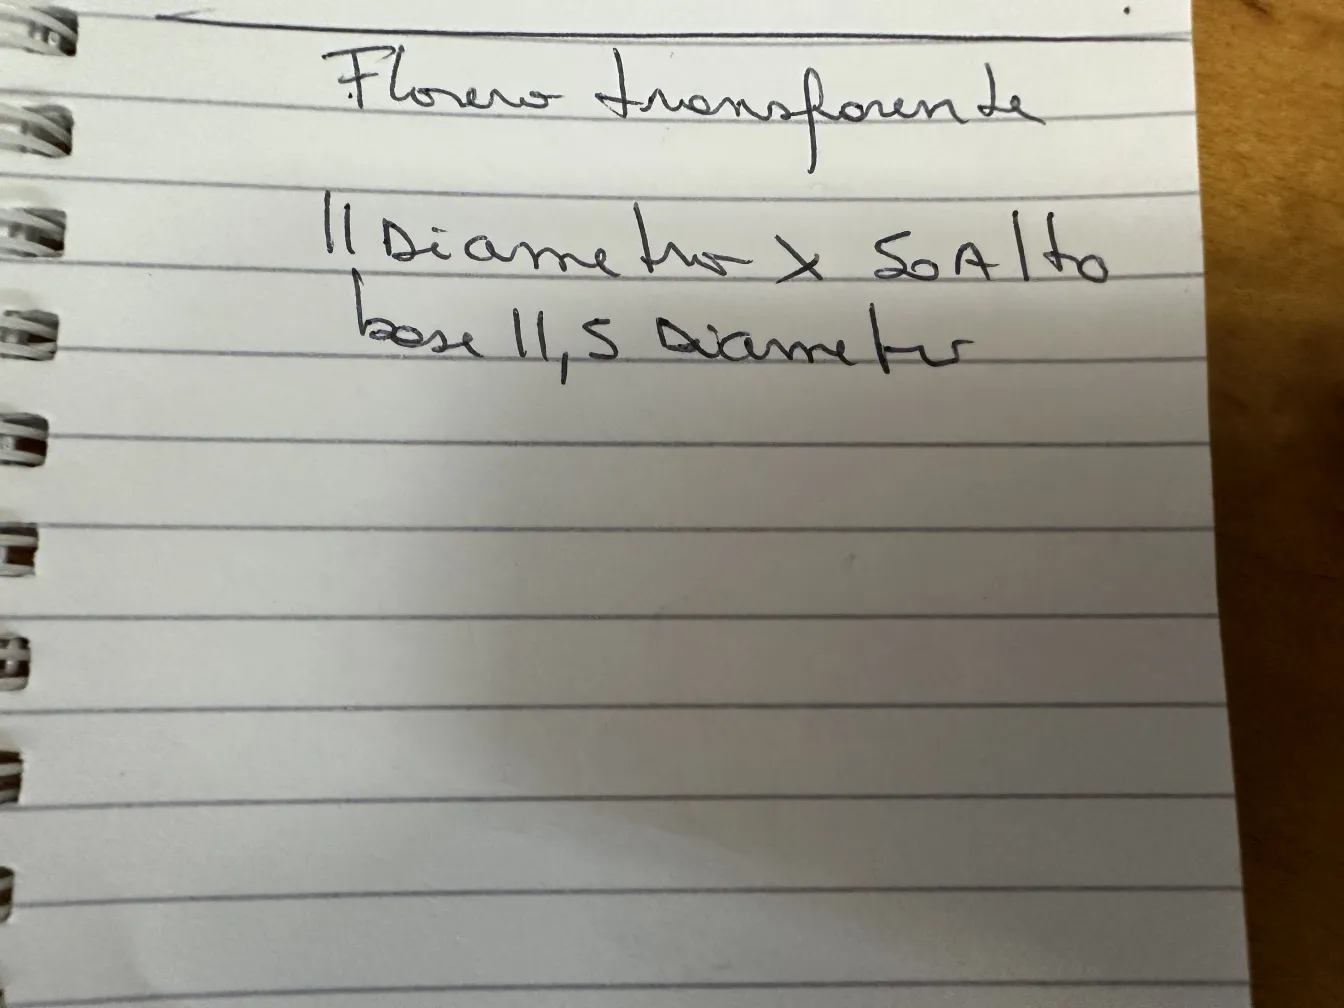 Florero transparente
11 Diametro x 50 Alto
base 11,5 Diametro